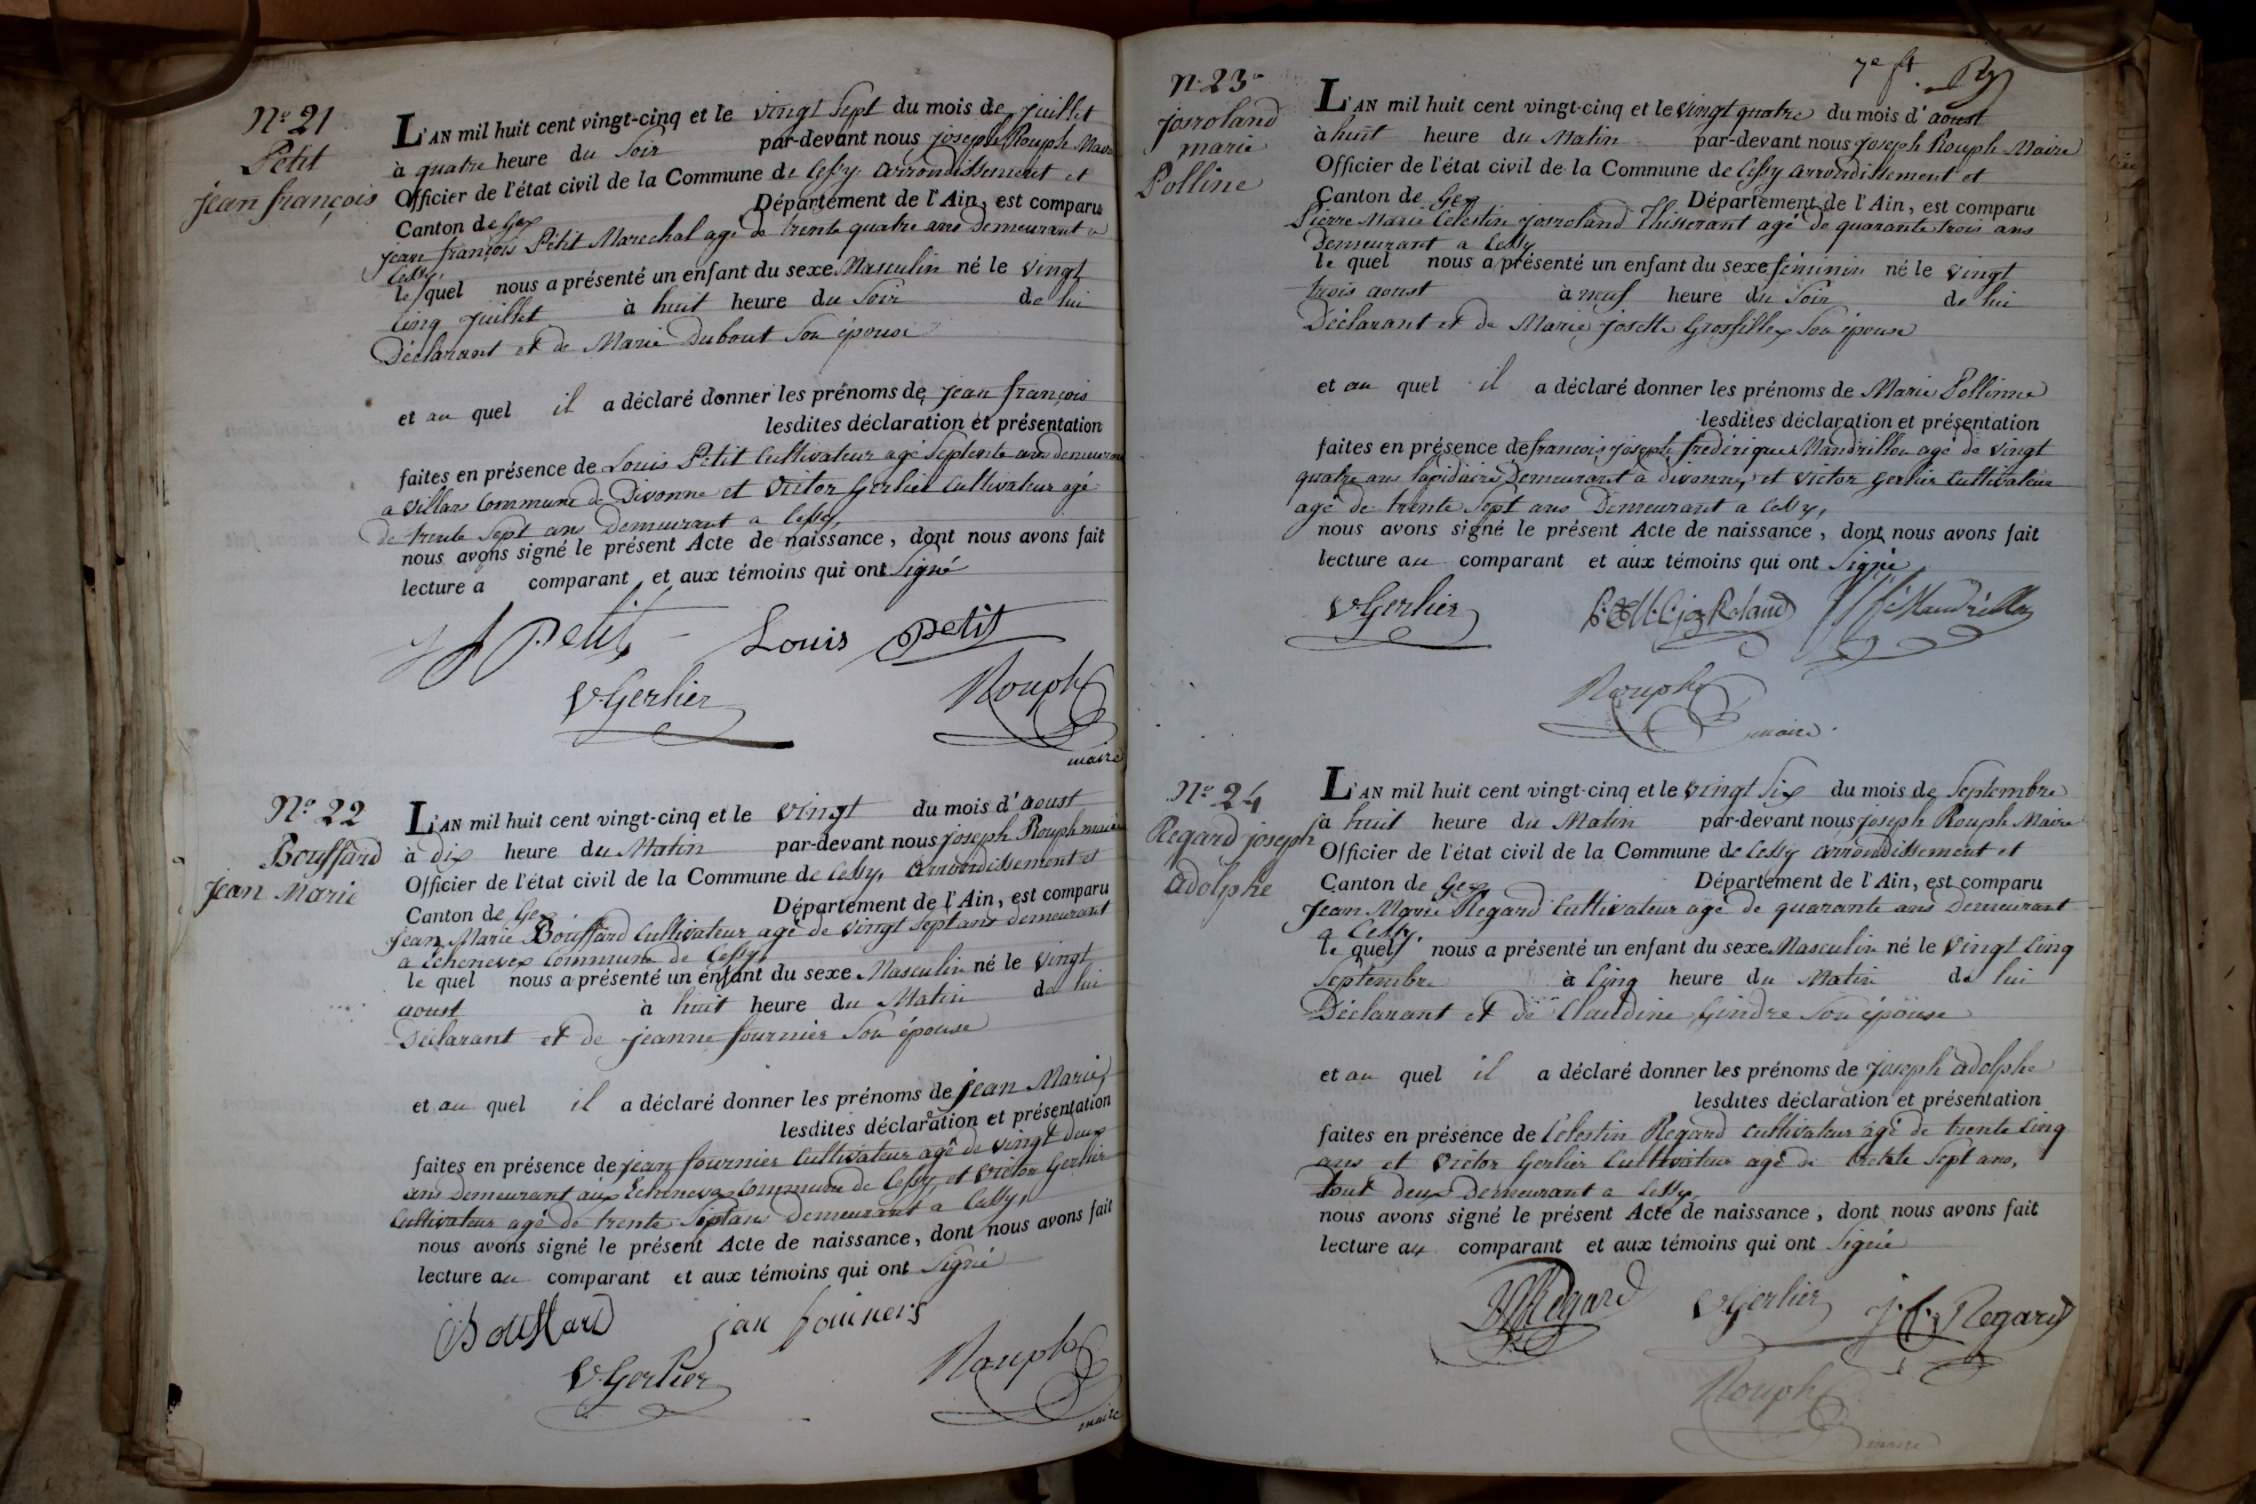 N° 21
Petit
jean françois
L'AN mil huit cent vingt-cinq et le vingt sept du mois de juillet
à quatre heure du soir par-devant nous joseph Rouph Maire
Officier de l'état civil de la Commune de Cessy arrondissement et
Canton de Gex Département de l'Ain, est comparu
jean françois Petit Marechal agé de trente quatre ans Demeurant a
Cessy,
le quel nous a présenté un enfant du sexe Masculin né le vingt
cinq juillet à huit heure du soir de lui
Déclarant et de Marie Dubout son épouse
et au quel il a déclaré donner les prénoms de jean françois
lesdites déclaration et présentation
faites en présence de Louis Petit Cultivateur agé septente ans demeurant
a villars Commune de Divonne et victor Gerlier Cultivateur agé
de trente sept ans Demeurant a Cessy,
nous avons signé le présent Acte de naissance, dont nous avons fait
lecture a comparant et aux témoins qui ont signé
Petit Louis Petit
V. Gerlier Rouph
maire
N° 22
Bouffard
jean Marie
L'AN mil huit cent vingt-cinq et le vingt du mois d'aoust
à dix heure du Matin par-devant nous joseph Rouph maire
Officier de l'état civil de la Commune de Cessy, arrondissement et
Canton de Gex Département de l'Ain, est comparu
jean Marie Bouffard Cultivateur agé de vingt sept ans demeurant
a Echenevex Commune de Cessy,
le quel nous a présenté un enfant du sexe Masculin né le vingt
aoust à huit heure du Matin de lui
Déclarant et de jeanne fournier son épouse
et au quel il a déclaré donner les prénoms de jean Marie,
lesdites déclaration et présentation
faites en présence de jean fournier Cultivateur agé de vingt deux
ans demeurant aux Echenevex Commune de Cessy, et victor Gerlier
Cultivateur agé de trente sept ans demeurant a Cessy,
nous avons signé le présent Acte de naissance, dont nous avons fait
lecture au comparant et aux témoins qui ont signé
Bouffard jan fouiners
V. Gerlier Rouph
maire
7e ft.
N. 23
josroland
marie
Polline
L'AN mil huit cent vingt-cinq et le vingt quatre du mois d'aoust
à huit heure du Matin par-devant nous joseph Rouph Maire
Officier de l'état civil de la Commune de Cessy arrondissement et
Canton de Gex Département de l'Ain, est comparu
Pierre Marie Celestin josroland Thisserant agé de quarante trois ans
Demeurant a Cessy
le quel nous a présenté un enfant du sexe féminin né le vingt
trois aoust à neuf heure du soir de lui
Déclarant et de Marie josette Grosfillex son épouse
et au quel il a déclaré donner les prénoms de Marie Pollinne
lesdites déclaration et présentation
faites en présence de francois joseph frédérique Mandrillon agé de vingt
quatre ans lapidaire Demeurant à divonne, et victor Gerlier Cultivateur
agé de trente sept ans Demeurant a Cessy,
nous avons signé le présent Acte de naissance, dont nous avons fait
lecture au comparant et aux témoins qui ont signé
V. Gerlier Mandrillon
Rouph
maire.
N° 24
Regard joseph
adolphe
L'AN mil huit cent vingt-cinq et le vingt six du mois de septembre
à huit heure du Matin par-devant nous joseph Rouph Maire
Officier de l'état civil de la Commune de Cessy arrondissement et
Canton de Gex Département de l'Ain, est comparu
Jean Marie Regard Cultivateur agé de quarante ans Demeurant
a Cessy.
le quel nous a présenté un enfant du sexe Masculin né le vingt cinq
septembre à cinq heure du Matin de lui
Déclarant et de Claudine Gindre son épouse
et au quel il a déclaré donner les prénoms de joseph adolphe
lesdites déclaration et présentation
faites en présence de Celestin Regard cultivateur agé de trente cinq
ans et victor Gerlier Cultivateur agé de trente sept ans,
tout deux demeurant a Cessy,
nous avons signé le présent Acte de naissance, dont nous avons fait
lecture au comparant et aux témoins qui ont signé
Regard V. Gerlier J. C. Regard
Rouph
maire